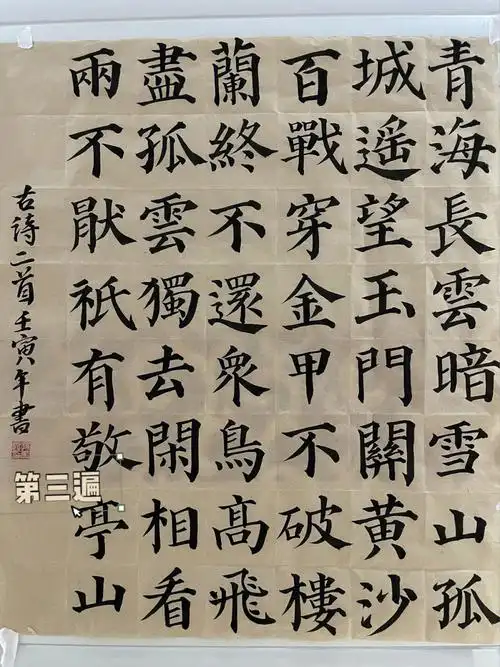 青海長雲暗雪山孤
城遥望玉門關黄沙
百戰穿金甲不破樓
蘭終不還衆鳥髙飛
盡孤雲獨去閑相看
兩不猒祇有敬亭山
古詩二首壬寅年書
第三遍